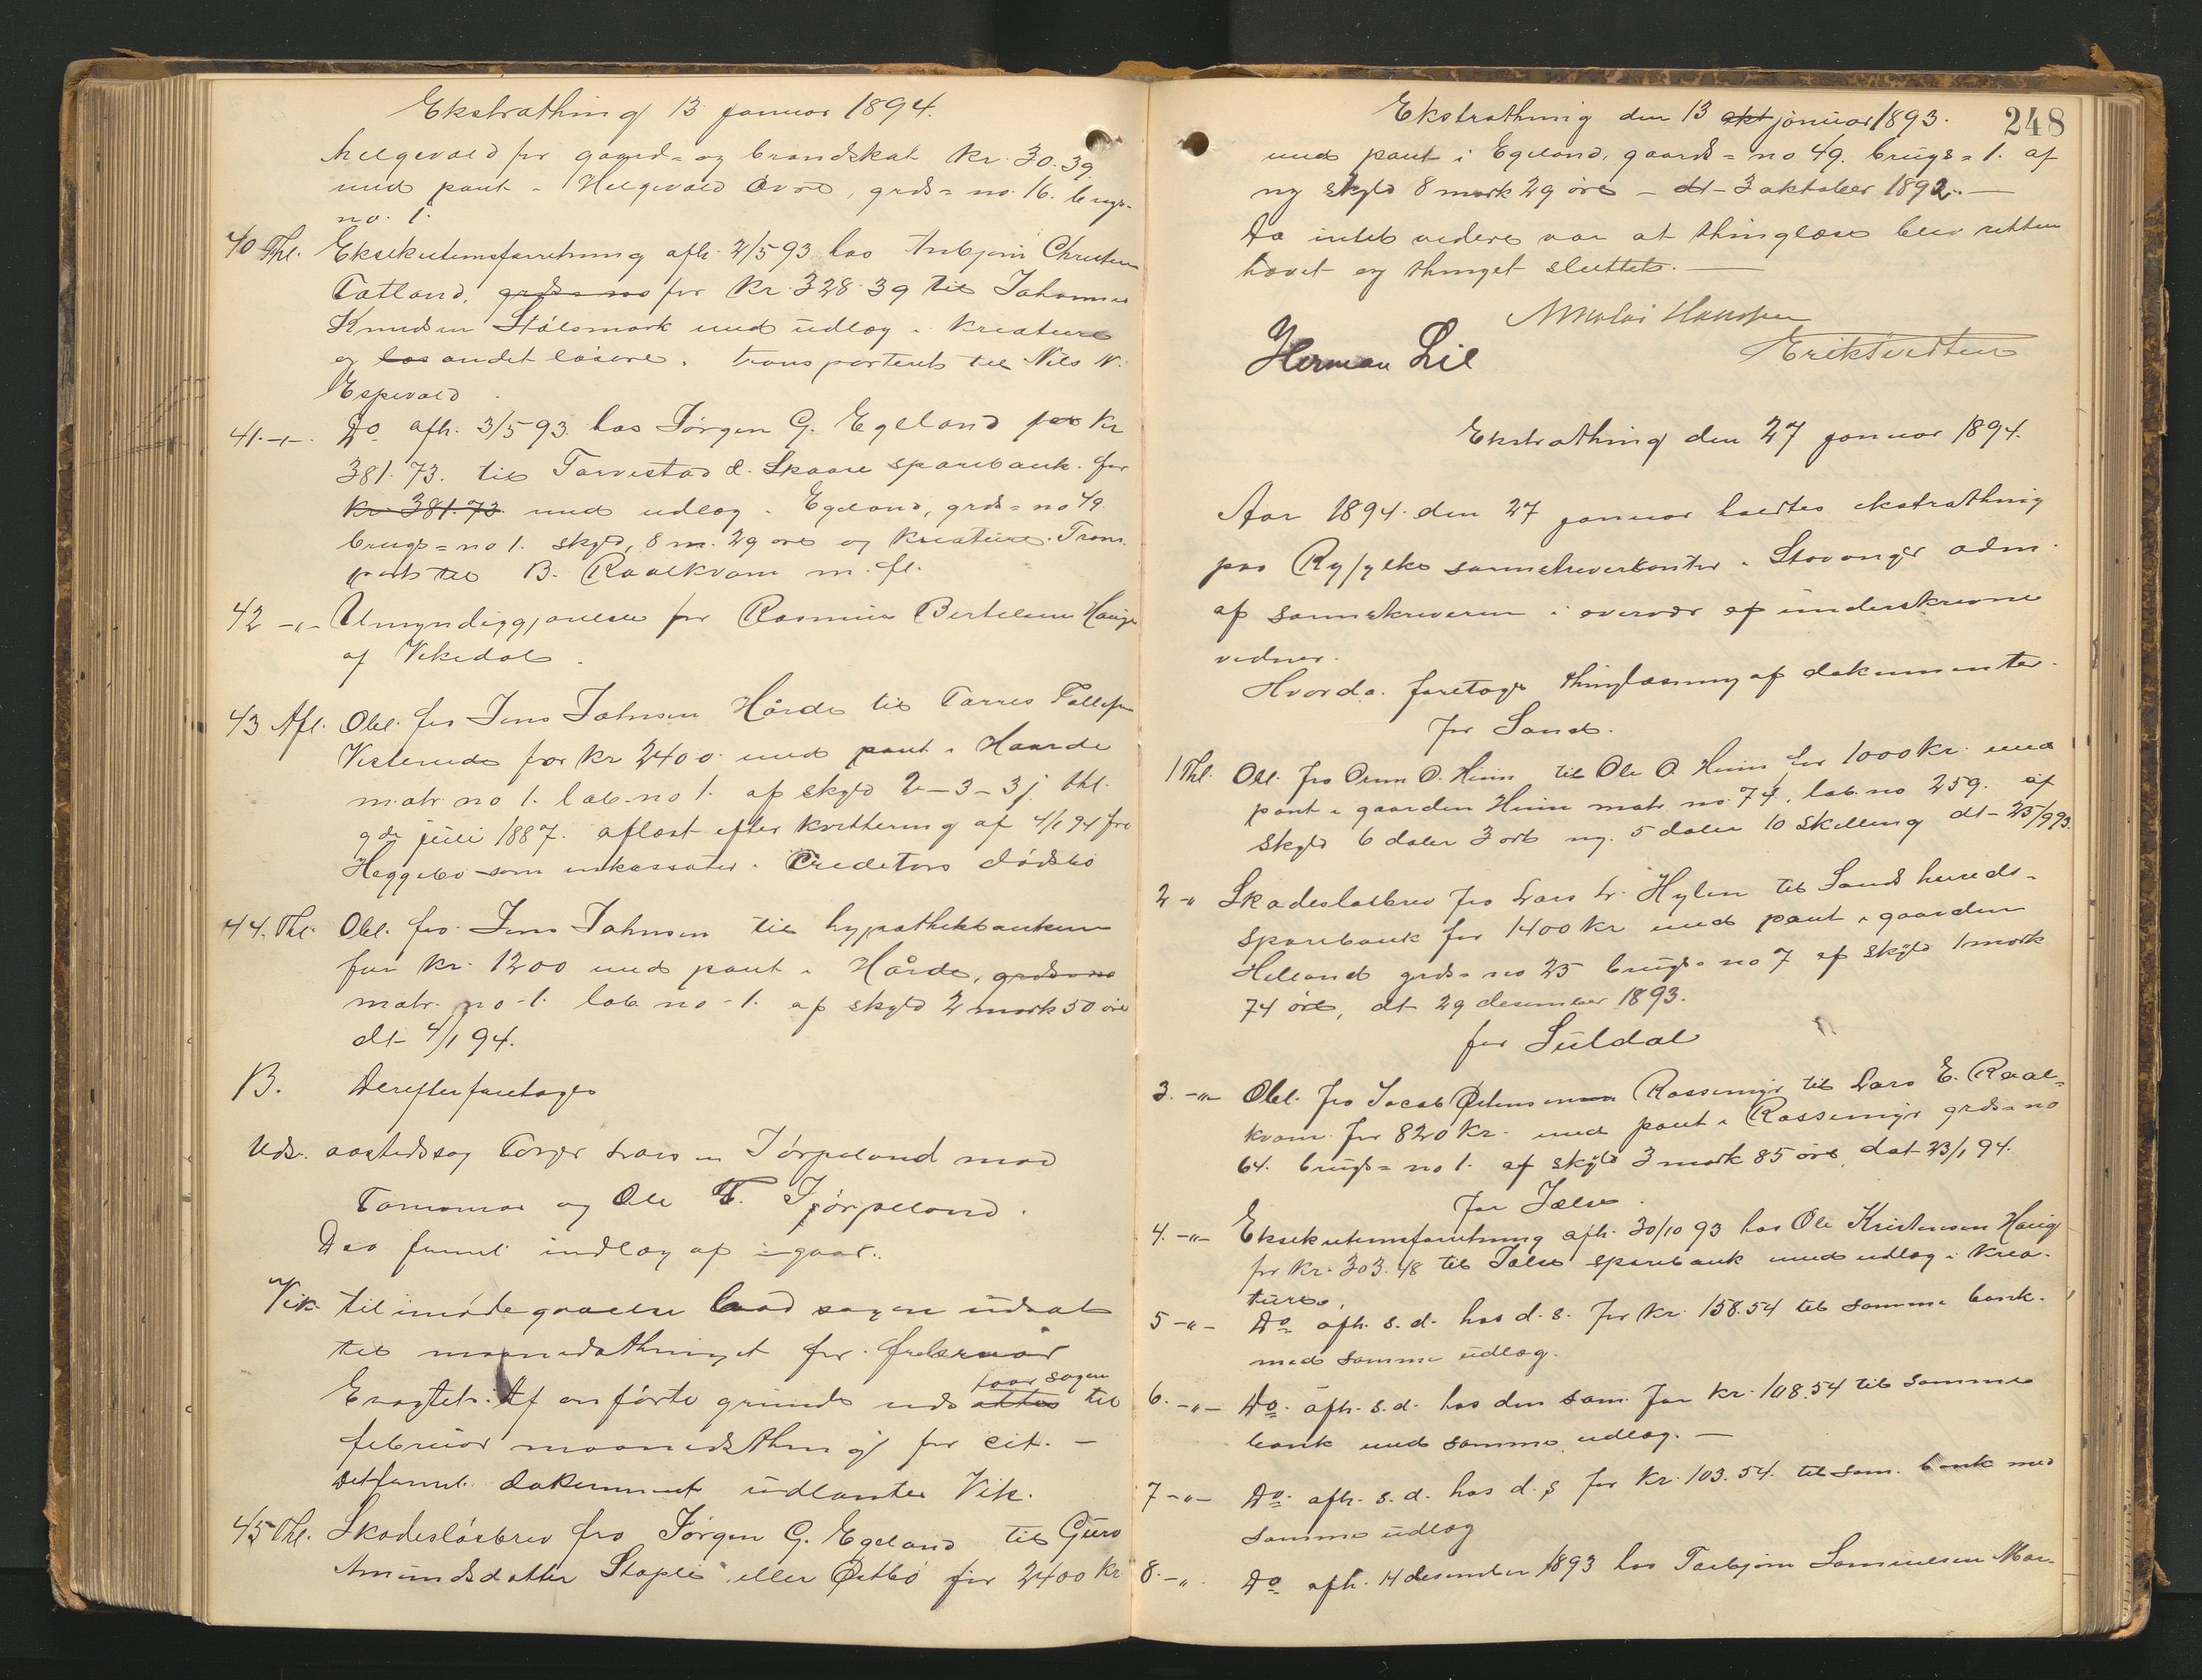 Ekstrathing 13 januar 1894.
helgevold for gaard- og brandskat kr. 30.39
med pant i Helgevold øvre, grds-no. 16. brugs-
no. 1.
40 Thl. Eksekutionsforretning afh. 2/5 93 hos Anbjørn Christen
Tatland, grds-no for kr. 328.39 til Johannes
Knudsen Stålsmark med udlæg i kreature
og løs andet løsøre. transporteret til Nils N.
Espevold
41. -,,- Do afh. 3/5 93 hos Jørgen G. Egeland for kr
381.73. til Torvestad & Skaare sparebank for
kr. 381.73 med udlæg i Egeland, grds-no 49
brugs-no 1. skyld, 8 m. 29 øre og kreature. Trans-
ports til B. Raalkvam m. fl.
42 -,,- Umyndiggjørelse for Rasmus Bertelsen Hauge
af Vikedal.
43 Afl. Obl. fra Jens Johnsen Hårde til Torres Tollefsen
for kr 2400 med pant i Haarde
matr. no 1. løb-no 1. af skyld 2-3-3 j. thl.
9de juli 1887. aflæst efter kvittering af 4/1 94 fra
Heggebø som inkassator i Creditors dødsbo
44. Thl. Obl. fra Jens Johnsen til hypothekbanken
for kr. 1200 med pant i Hårde, grds-no
matr. no-1. løb no-1. af skyld 2 mark 50 øre
dt- 4/1 94.
B. Derefter foretoges
Uds. aastedssag Torger Larsen Jørpeland mod
Tommas og Ole T. Jørpeland.
Der freml. indlæg af igaar.
Vik. til imødegaaelse bad sagen udsat
til maanedsthinget for februar
Eragtet: Af anførte grunde uds ættes staar sagen til
februar maanedsthing for cit. -
Det freml. dokument udlaantes Vik.
45 Thl. Skadesløsbrev fra Jørgen G. Egeland til Guro
Amundsdatter Stople eller Østbø for 2400 kr
Ekstrathing den 13 okt januar 1893. 248
med pant i Egeland, gaards-no 49. brugs-1. af
ny skyld 8 mark 29 øre - dt- 3 oktober 1892. -
Da intet videre var at thinglæse blev retten
hævet og thinget sluttet. -
Nikolai Hansen
Herman Lie Erik Tvedten
Ekstrathing den 27 januar 1894.
Aar 1894. den 27 januar holdtes ekstrathing
paa Ryfylke sorenskriverkontor i Stavanger adm.
af sorenskriveren i overvær af underskrevne
vidner.
Hvorda foretoges thinglæsning af dokumenter.
for Sand.
1 Thl. Obl. fra Orm O. Hiim til Ole O. Hiim for 1000 kr. med
pant i gaarden Hiim matr. no. 74, løb. no 259. af
skyld 6 daler 3 ort ny. 5 daler 10 skilling dt- 25/9 93.
2 -,, Skadesløsbrev fra Lars L. Hylen til Sands hereds-
sparebank for 1400 kr med pant i gaarden
Helland grds-no 25 brugs-no 7 af skyld 1 mark
74 øre, dt 29 desember 1893.
for Suldal
3. -,,- Obl. fra Jacob Rossemyr til Lars E. Raal-
kvam for 820 kr. med pant i Rossemyr grds-no
64. brugs-no 1. af skyld 3 mark 85 øre, dat 23/1 94.
for Jælse.
4. -,,- Eksekutionsforretning afh. 30/10 93 hos Ole Kristensen Haug
for kr. 303.48 til Jælse sparebank med udlæg i krea-
ture.
5 -,,- Do afh. s. d. hos d. s. for kr. 158.54 til samme bank.
med samme udlæg.
6. -,,- Do. afh. s. d. hos den sam. for kr. 108.54 til samme
bank med samme udlæg. -
7 -,,- Do. afh. s. d. hos d. s for kr. 103.54. til sam. bank med
samme udlæg
8. -,,. Do afh. 14 desember 1893 hos Torbjørn Samuelsen Mar-